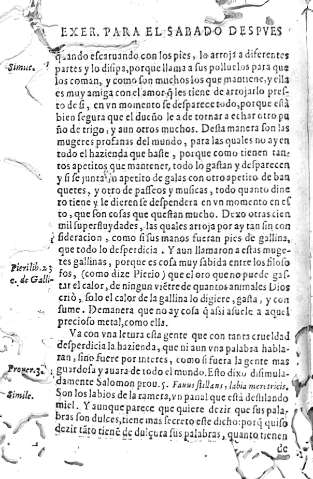 EXER. PARA EL SABADO DESPVES
quando escaruando con los pies, lo arroja a diferentes
Simile.
partes y lo disipa, porque llama a sus polluelos para que
los coman, y como son muchos los que mantiene, y ella
es muy amiga con el amor q̃ les tiene de arrojarlo pres-
to de si, en vn momento se desparece todo, porque està
bien segura que el dueño le a de tornar a echar otro pu
ño de trigo, y aun otros muchos. Desta manera son las
mugeres profanas del mundo, para las quales no ay en
todo el hazienda que baste, porque como tienen tan-
tos apetitos que mantener, todo lo gastan y desparecen
y si se junta vn apetito de galas con otro apetito de ban
quetes, y otro de passeos y musicas, todo quanto dine
ro tiene y le dieren se despendera en vn momento en es
to, que son cosas que questan mucho. Dexo otras cien
mil superfluydades, las quales arroja por ay tan sin con
sideracion, como si sus manos fueran pies de gallina,
que todo lo desperdicia. Y aun llamaron a estas muge-
res gallinas, porque es cosa muy sabida entre los filoso
Pieri lib. 23
fos, (como dize Pierio) que el oro que no puede gas-
c. de Galli-
tar el calor, de ningun viẽtre de quantos animales Dios
criò, solo el calor de la gallina lo digiere, gasta, y con
sume. Demanera que no ay cosa q̃ assi asuele a aquel
precioso metal, como ella.
Va con vna letura esta gente que con tanta crueldad
desperdicia la hazienda, que ni aun vna palabra habla-
ran, sino fuere por interes, como si fuera la gente mas
Prouer. 5.
guardosa y auara de todo el mundo. Esto dixo disimula-
damente Salomon prou. 5. Fauus stillans, labia meretricis.
Simile.
Son los labios de la ramera, vn panal que està destilando
miel. Y aunque parece que quiere dezir que sus pala-
bras son dulces, tiene mas secreto este dicho: porq̃ quiso
dezir tãto tienẽ de dulçura sus palabras, quanto tienen
de